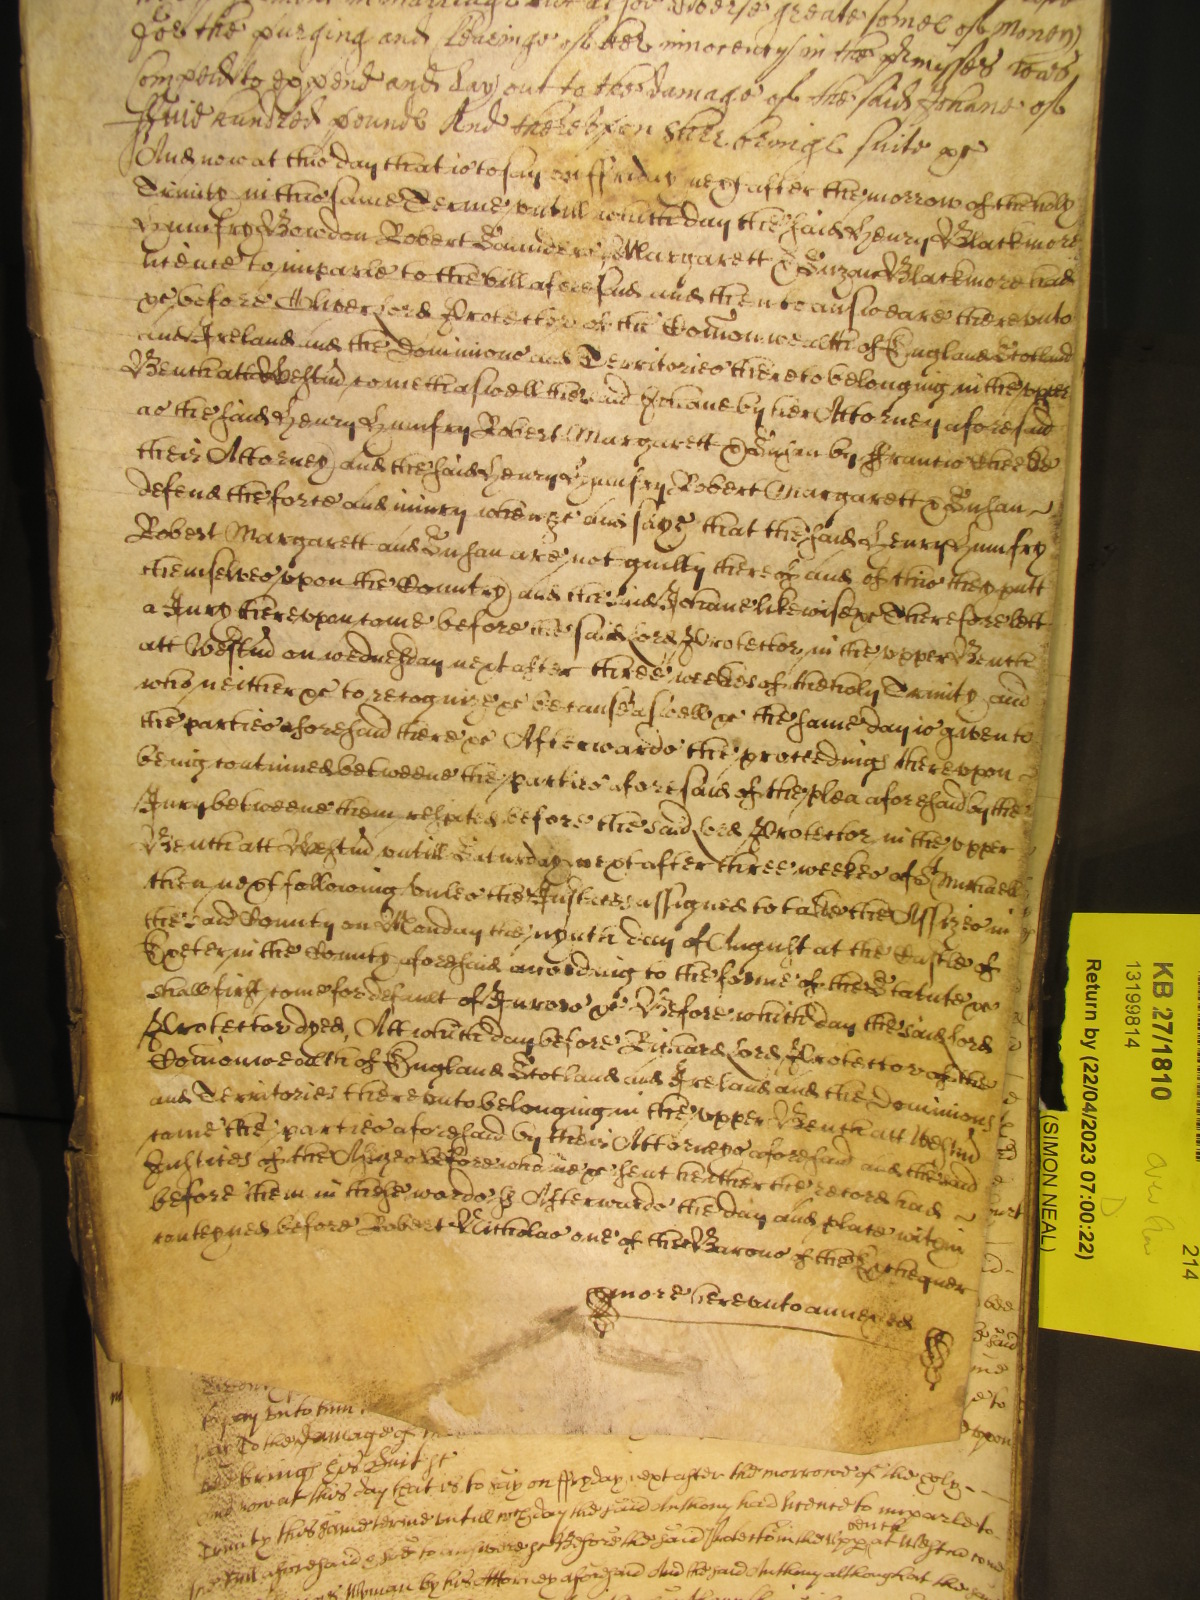 for the purging and clearinge of her innocency in the p'misses was
compeld to expend and lay out to the damage of the said Johane of
ffive hundred pounds And thereupon shee bringe suite &c
And now at this day that is to say on ffriday next after the morrow of the holy
Trinity in this same Terme untill which day the said Henry Blackmore
Humfry Bowdon Robert Saunders Margarett & Suzan Blackmore had
licence to imparle to the bill aforesaid and then to answeare thereunto
&c before Oliver Lord Protector of the Com'onwealth of England Scotland
and Ireland and the Dominions and Territories thereto belonging in the upper
Bench att Westm' cometh aswell the said Johane by her Attorney aforesaid
as the said Henry Humfry Robert Margarett & Susan by Francis
their Attorney and the said Henry Humfry Robert Margarett & Susan
defend the force and iniury when &c and saye that the said Henry Humfry
Robert Margarett and Susan are not guilty thereof and of this they putt
themselves upon the Country and the said Johane likewise &c Therefore lett
a Jury thereupon come before the said Lord Protector in the upper Bench
att Westm' on wednesday next after three weekes of the holy Trinity and
who neither &c to recognize &c because aswell &c the same day is given to
the parties aforesaid there &c Afterwards the proceedings thereupon
being continued betweene the parties aforesaid of the plea aforesaid by the
Jury betweene them respited before the said Lord Protector in the upper
Bench att Westm' untill Saturday next after three weekes of St Michaell
then next following unles the Justices assigned to take the Assizes in
the said County on Monday the nynth day of August at the Castle of
Exeter in the County aforesaid according to the forme of the Statute &c
shall first come for default of Jurors &c Before which day the said Lord
Protector dyed Att which day before Richard Lord Protector of the
Com'onwealth of England Scotland and Ireland and the Dominions
and Territories thereunto belonging in the upper Bench att Westm'
came the parties aforesaid by their Attorneys aforesaid and the said
Justices of the Assizes before whome &c sent hether the record had
before them in these words ss Afterwards the day and place within
conteyned before Robert Nicholas one of the Barons of the Exchequer
more hereunto annexed
to pay unto him
to the damage
bringes his suite &c
And now at this day that is to say on ffryday next after the morrowe of the holy
Trinity this same terme untill which day the said Anthony had licence to imparle to
the Bill aforesaid & soe to answere &c Before the said Protector in the Upper Bench at Westm' come
by his Attorney aforesaid And the said Anthony although
KB 27/1810
13199814
Return by (22/04/2023 07:00:22)
(SIMON NEAL)
214